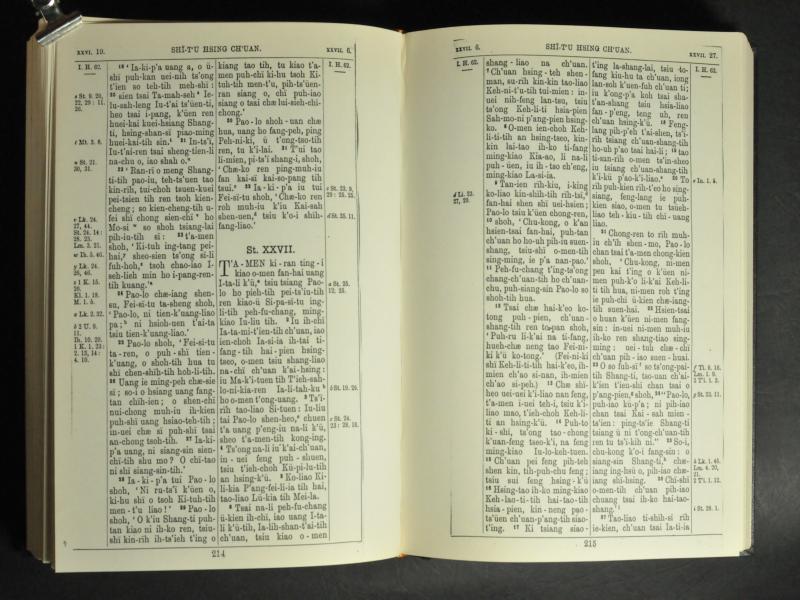 XXVI. 19.
SHÏ-TU HSING CH'UAN.
XXVII. 6.
I. H. 62.
¹⁹ 'Ia-ki-p'a uang a, o ü-
shï puh-kan uei-nih ts'ong
t'ien so teh-tih meh-shï:
²⁰ sien tsai Ta-mah-seh
Iu-sah-leng Iu-t'ai ts'üen-ti,
heo tsai i-pang, k'üen ren
huei-kai kuei-hsiang Shang-
ti, hsing-shan-si piao-ming
huei-kai-tih sin.
Iu-t'ai-ren tsai sheng-tien-li
na-chu o, iao shah o.
²² 'Ran-ri o meng Shang-
ti-tih pao-iu, teh-ts'uen tao
kin-rih, tui-choh tsuen-kuei
pei-tsien tih ren tsoh kien-
cheng; so kien-cheng-tih u-
fei shï chong sien-chï ho
Mo-si so shoh tsiang-lai
pih-iu-tih si: ²³ t'a-men
shoh, 'Ki-tuh ing-tang pei-
hai, sheo-sien ts'ong si-li
fuh-hoh, tsoh chao-iao I-
seh-lieh min ho i-pang-ren-
tih kuang.'
²⁴ Pao-lo chæ-iang shen-
su, Fei-si-tu ta-sheng shoh,
'Pao-lo, ni tien-k'uang-liao
pa; ni hsioh-uen t'ai-ta
tsiu tien-k'uang-liao.'
²⁵ Pao-lo shoh, 'Fei-si-tu
ta-ren, o puh-shï tien-
k'uang, o shoh-tih hua tu
shï chen-shih-tih hoh-li-tih.
²⁶ Uang ie ming-peh chæ-sie
si; so-i o hsiang uang fang-
tan chïh-ien; o shen-chï
nui-chong muh-iu ih-kien
puh-shï uang hsiao-teh-tih;
in-uei chæ si puh-shï tsai
an-chong tsoh-tih. ²⁷ Ia-ki-
p'a uang, ni siang-sin sien-
chï-tih shu mo? O chï-tao
ni shï siang-sin-tih.'
²⁸ Ia-ki-p'a tui Pao-lo
shoh, 'Ni ru-ts'ï k'üen o,
ki-hu shï o tsoh Ki-tuh-tih
men-t'u liao!' ²⁹ Pao-lo
shoh, 'O k'iu Shang-ti puh-
tan kiao ni ih-ko ren, tsiu-
shï kin-rih ih-ts'ieh t'ing o
kiang tao tih, tu kiao t'a-
men puh-chï ki-hu tsoh Ki-
tuh-tih men-t'u, pih-ts'üen-
ran siang o, chï puh-iao
siang o tsai chæ lui-sieh-chï-
chong.'
³⁰ Pao-lo shoh-uan chæ
hua, uang ho fang-peh, ping
Peh-ni-ki, ü t'ong-tso-tih
ren, tu k'i-lai. ³¹ T'ui tao
li-mien, pi-ts'ï shang-i, shoh,
'Chæ-ko ren ping-muh-iu
fan kai-si kai-so-pang tih
tsui.' ³² Ia-ki-p'a iu tui
Fei-si-tu shoh, 'Chæ-ko ren
roh muh-iu k'iu Kai-sah
shen-uen, tsiu k'o-i shih-
fang-liao.'
St. XXVII.
T'A-MEN ki-ran ting-i
kiao o-men fan-hai uang
I-ta-li k'ü, tsiu tsiang Pao-
lo ho pieh-tih pei-ts'iu-tih
ren kiao-ü Si-pa-si-tu ing-
li-tih peh-fu-chang, ming-
kiao Iu-liu tih. ² Iu ih-chï
Ia-ta-mi-t'ien-tih ch'uan, iao
ien-choh Ia-si-ia ih-tai ti-
fang-tih hai-pien hsing-
tseo, o-men tsiu shang-liao
na-chï ch'uan k'ai-hsing:
iu Ma-k'i-tuen tih T'ieh-sah-
lo-ni-kia-ren Ia-li-tah-ku
ho o-men t'ong-uang. ³ Ts'ï-
rih tao-liao Si-tuen: Iu-liu
tai Pao-lo shen-heo, chuen
t'a uang p'eng-iu na-li k'ü,
sheo t'a-men-tih kong-ing.
⁴ Ts'ong na-li iu k'ai-ch'uan,
in-uei feng puh-shuen,
tsiu t'ieh-choh Kü-pi-lu-tih
an hsing-k'ü. ⁵ Ko-liao Ki-
li-kia P'ang-fei-li-ia tih hai,
tao-liao Lü-kia tih Mei-la.
⁶ Tsai na-li peh-fu-chang
ü-kien ih-chï, iao uang I-ta-
li k'ü-tih, Ia-lih-shan-t'ai-tih
ch'uan, tsiu kiao o-men
214
XXVII. 6.
SHÏ-TU HSING CH'UAN.
XXVII. 27.
I. H. 62.
shang-liao na ch'uan.
⁷ Ch'uan hsing-teh shen-
man, su-rih kin-kin tao-liao
Keh-ni-t'u-tih tui-mien: in-
uei nih-feng lan-tsu, tsiu
ts'ong Keh-li-ti hsia-pien
Sah-mo-ni p'ang-pien hsing-
ko. ⁸ O-men ien-choh Keh-
li-ti-tih an hsing-tseo, kin-
kin lai-tao ih-ko ti-fang
ming-kiao Kia-ao, li na-li
puh-üen, iu ih-tso ch'eng,
ming-kiao La-si-ia.
⁹ Tan-ien rih-kiu, i-king
ko-liao kin-shih-tih rih-tsï,
fan-hai shen shï uei-hsien;
Pao-lo tsiu k'üen chong-ren,
¹⁰ shoh, 'Chu-kong, o k'an
hsien-tsai fan-hai, puh-tan
ch'uan ho ho-uh pih-iu suen-
shang, tsiu-shï o-men-tih
sing-ming, ie p'a nan-pao.'
¹¹ Peh-fu-chang t'ing-ts'ong
chang-ch'uan-tih ho ch'uan-
chu, puh-siang-sin Pao-lo so
shoh-tih hua.
¹² Tsai chæ hai-k'eo ko-
tong puh-pien, ch'uan-
shang-tih ren to-pan shoh,
'Puh-ru li-k'ai na ti-fang,
hueh-chæ neng tao Fei-ni-
ki k'ü ko-tong.' (Fei-ni-ki
shï Keh-li-ti-tih hai-k'eo, ih-
mien ch'ao si-nan, ih-mien
ch'ao si-peh.) ¹³ Chæ shï-
heo uei-uei k'i-liao nan feng,
t'a-men i-uei teh-i, tsiu k'i-
liao mao, t'ieh-choh Keh-li-
ti an hsing-k'ü. ¹⁴ Puh-to
ki-shï, ta-song tao-chong
k'uan-feng tseo-k'i, na feng
ming-kiao Iu-lo-keh-tuen.
¹⁵ Ch'uan pei feng pih-teh
shen kin, tih-puh-chu feng;
tsiu sui feng hsing-k'ü
¹⁶ Hsing-tao ih-ko ming-kiao
Keh-lao-ti-tih hai-tao-tih
hsia-pien, kin-neng pao-
ts'üen ch'uan-p'ang-tih siao-
t'ing. ¹⁷ Ki tsiang siao-
t'ing la-shang-lai, tsiu to-
fang kiu-hu ta ch'uan, iong
lan-soh k'uen-fuh ch'uan ti;
iu k'ong-p'a koh tsai sha-
t'an-shang tsiu hsia-liao
fan-p'eng, teng uh, ren
ch'uan hsing-k'ü. ¹⁸ Feng-
lang pih-p'eh t'ai-shen, ts'ï-
rih tsiang ch'uan-shang-tih
ho-uh p'ao tsai hai-li; ¹⁹ tao
ti-san-rih o-men ts'in-sheo
iu tsiang ch'uan-shang-tih
k'i-kü p'ao-k'i-liao. ²⁰ To
rih puh-kien rih-t'eo ho sing-
siang, feng-lang ie puh-
kien siao, o-men tu tsueh-
liao teh-kiu-tih chï-uang
liao.
²¹ Chong-ren to rih muh-
iu ch'ih shen-mo, Pao-lo
chan tsai t'a-men chong-kien
shoh, 'Chu-kong, ni-men
pen kai t'ing o k'üen ni-
men puh-k'o li-k'ai Keh-li-
ti tih hua, ni-men roh t'ing
ie puh-chï ü-kien chæ-iang-
tih suen-hai. ²² Hsien-tsai
o huan k'üen ni-men fang-
sin: in-uei ni-men muh-iu
ih-ko ren shang-tiao sing-
ming: uei-tuh chæ-chï
ch'uan pih-iao suen-huai.
²³ O so fuh-si so ts'ong-pai-
tih Shang-ti, tao-uan ch'ai-
k'ien t'ien-shï chan tsai o
p'ang-pien, shoh, ²⁴ "Pao-lo,
puh-iao kü-p'a; ni pih-iao
chan tsai Kai-sah mien-
ts'ien: ping-ts'ie Shang-ti
tsiang ü ni t'ong-ch'uan-tih
ren tu ts'ï-kih ni." ²⁵ So-i,
chu-kong k'o-i fang-sin: o
siang-sin Shang-ti, chæ-
iang ing-hsü o, pih-iao chæ-
iang shï-hsing. ²⁶ Chï-shï
o-men-tih ch'uan pih-iao
chuang tsai ih-ko hai-tao-
shang.'
²⁷ Tao-liao ti-shih-si rih
ie-kien, ch'uan tsai Ia-ti-ia
215